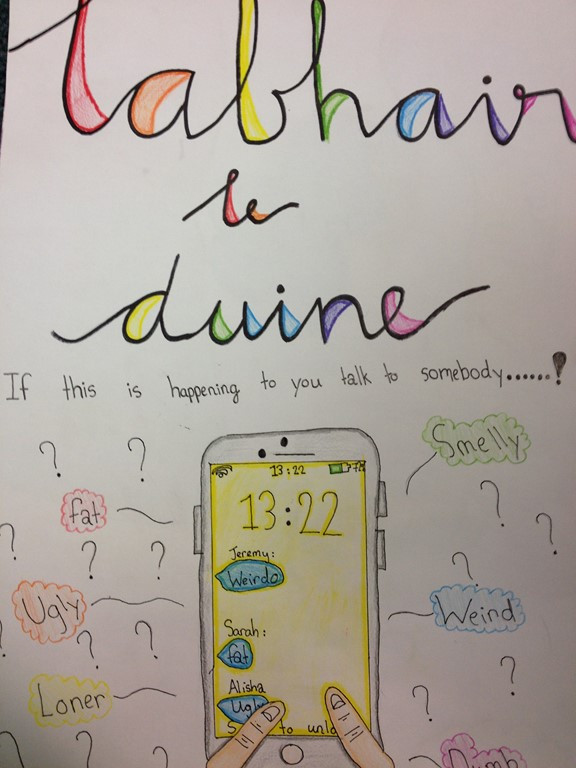 labhair
le
duine
If this is happening to you talk to somebody......!
Smelly
13:22
13:22
fat
Jeremy:
Weirdo
Ugly
Weird
Sarah:
fat
Alisha
Ugly
Loner
to
Dumb